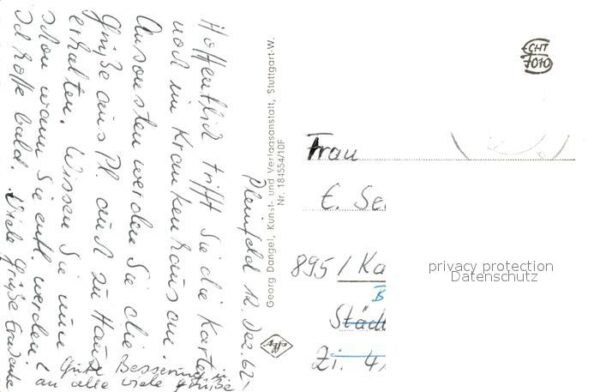 Pleinfeld 12. Dez. 62.
Hoffentlich trifft Sie die Karte
noch im Krankenhaus an.
Ansonsten werden Sie die
Grüße aus Pl. auch zu Hause
erhalten. Wissen Sie nun
schon wann Sie entl. werden?
Ich hoffe bald. Viele Grüße
Gute Besserung
an alle viele Grüße
Georg Dangel, Kunst- und Verlagsanstalt, Stuttgart-W.
Nr. 184554/10F
ECHT
FOTO
Frau
E. Se
895 / Ka
B
Städt
Zi. 4,
privacy protection
Datenschutz